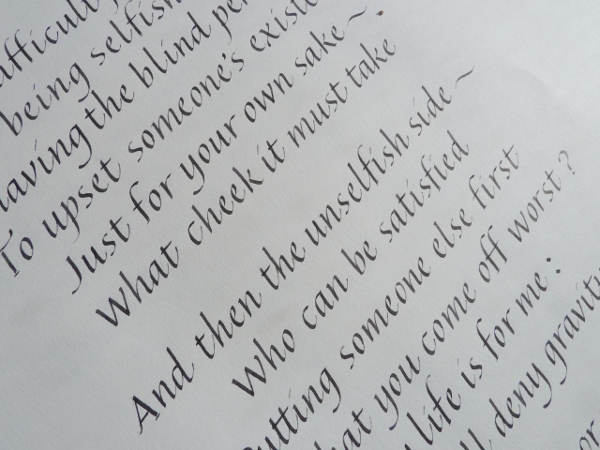 being selfish
the blind
To upset someone's
Just for your own sake~
What cheek it must take
And then the unselfish side~
Who can be satisfied
someone else first
you come off worst?
life is for me:
deny gravity